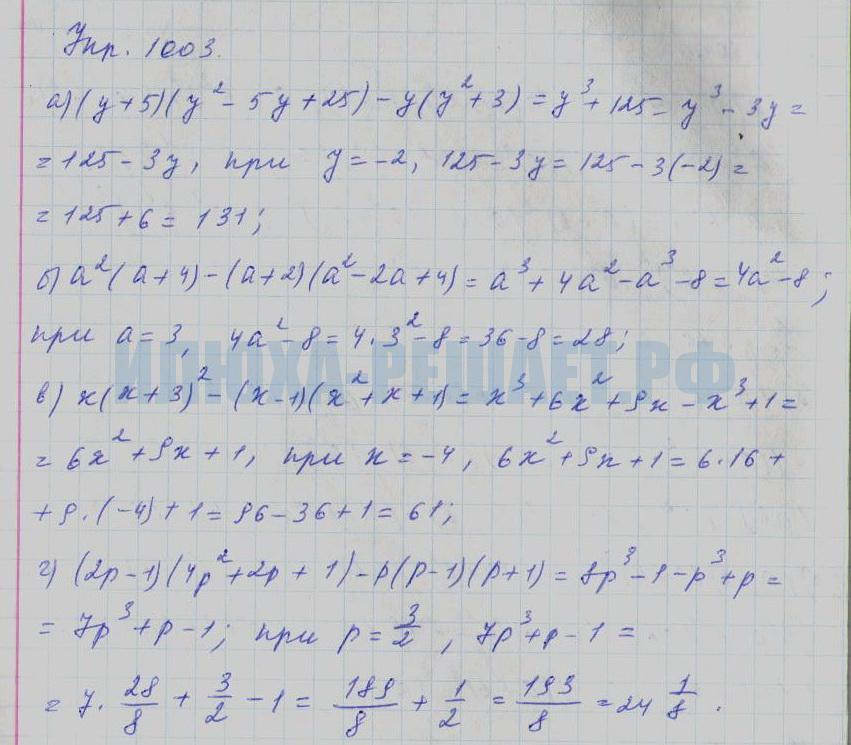 Упр. 1003.
а) (y+5)(y² - 5y + 25) - y(y² + 3) = y³ + 125 = y³ - 3y =
= 125 - 3y, при y = -2, 125 - 3y = 125 - 3(-2) =
= 125 + 6 = 131;
б) a²(a+4) - (a+2)(a² - 2a + 4) = a³ + 4a² - a³ - 8 = 4a² - 8;
при a = 3, 4a² - 8 = 4·3² - 8 = 36 - 8 = 28;
ИДЮХА-РЕШАЕТ.РФ
в) x(x+3)² - (x-1)(x² + x + 1) = x³ + 6x² + 9x - x³ + 1 =
= 6x² + 9x + 1, при x = -4, 6x² + 9x + 1 = 6·16 +
+ 9·(-4) + 1 = 96 - 36 + 1 = 61;
г) (2p-1)(4p² + 2p + 1) - p(p-1)(p+1) = 8p³ - 1 - p³ + p =
= 7p³ + p - 1; при p = 3/2, 7p³ + p - 1 =
= 7 · 28/8 + 3/2 - 1 = 189/8 + 1/2 = 193/8 = 24 1/8.